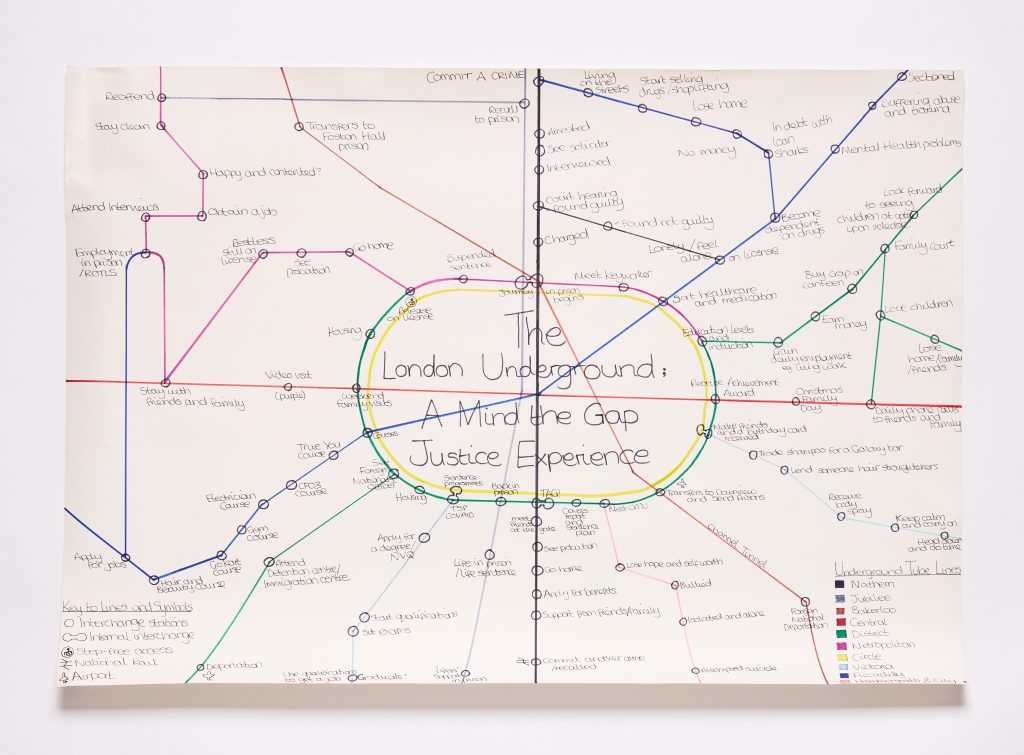 COMMIT A CRIME
Reoffend
Stay clean
Happy and contented?
Attend Interviews
Obtain a job
Employment
in prison
/ROTLS
Restless
still on
license
See
probation
Go home
Transfers to
Foston Hall
prison
Recall
to prison
Suspended
sentence
Arrested
See solicitor
Interviewed
Court hearing
found guilty
Found not guilty
Charged
Living
on the
streets
Start selling
drugs/shoplifting
Lose home
No money
In debt with
loan
sharks
Become
dependent
on drugs
Lonely/feel
alone
on license
Sectioned
Suffering abuse
and bullying
Mental Health problems
Look forward
to seeing
children at gate
upon release
Family court
Buy crap on
canteen
Earn
money
Gain
daily employment
eg. wing work
Lose children
Lose
home/family
/friends
Daily phone calls
to friends and
family
Journey in prison
begins
Meet keyworker
Sort healthcare
and medication
Education levels
and
induction
Receive Achievement
Award
Christmas
Family
Day
Make friends
and a birthday card
received
Trade shampoo for a Galaxy bar
Lend someone hair straighteners
Receive
body
spray
Keep calm
and carry on
Head down
and do time
Release
on license
Housing
The
London Underground:
A Mind the Gap
Justice Experience
Stay with
friends and family
Video visit
(purple)
Weekend
family visits
Courses
True You
course
CFO3
course
Electrician
Course
Gym
course
Go Kart
course
Hair and
Beauty course
Apply
for jobs
See
Foreign
National
officer
Attend
Detention centre/
Immigration centre
Deportation
Housing
Sentence
programmes
TSP
COVAID
Back in
prison
TAG!
meet
friends
at the gate
See probation
Go home
Apply for benefits
Support from friends/family
Commit another crime
/recalled
Apply for
a degree/
NVQ
Start qualifications
Sit exams
Use qualifications
to get a job
Graduate!
Life in prison
/Life sentence
Meet OMU
Lose hope and self worth
Bullied
Isolated and alone
Attempted suicide
Transfers to Downview
and Send prisons
Channel Tunnel
Foreign
National
Deportation
Key to Lines and Symbols
Interchange stations
Internal interchange
Step-free access
National Rail
Airport
Underground Tube Lines
Northern
Jubilee
Bakerloo
Central
District
Metropolitan
Circle
Victoria
Piccadilly
Hammersmith & City